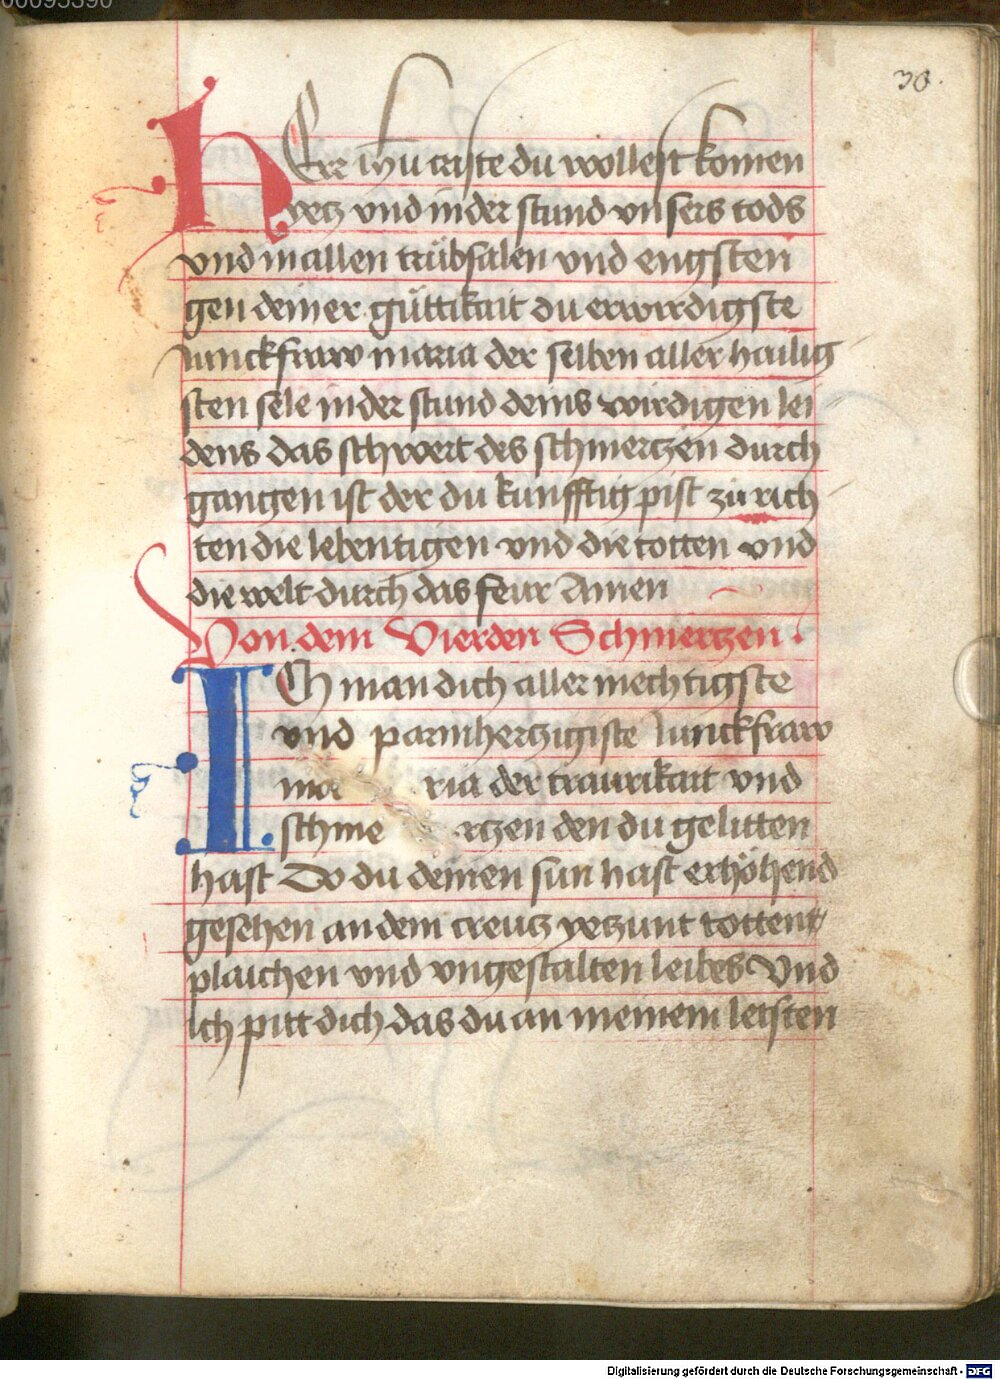 00095390
30.
HErr ihu criste du wollest komen
yetz vnd in der stund vnsers tods
vnd in allen trübsalen vnd engsten
gen deiner güttikait du erwirdigste
Iunckfraw maria der selben aller hailig
sten sele in der stund deins wirdigen lei
dens das schwert des schmertzen durch
gangen ist der du kunfftig pist zu rich
ten die lebentigen vnd die totten vnd
die welt durch das feur Amen
Von dem Vierden Schmertzen.
ICh man dich aller mechtigste
vnd parmhertzigiste Iunckfraw
ma ria der traurikait vnd
schme rtzen den du gelitten
hast Do du deinen sun hast erhöhend
gesehen an dem creutz yetzunt tottent
plaichen vnd vngestalten leibes Vnd
Ich pitt dich das du an meinem letsten
Digitalisierung gefördert durch die Deutsche Forschungsgemeinschaft - DFG